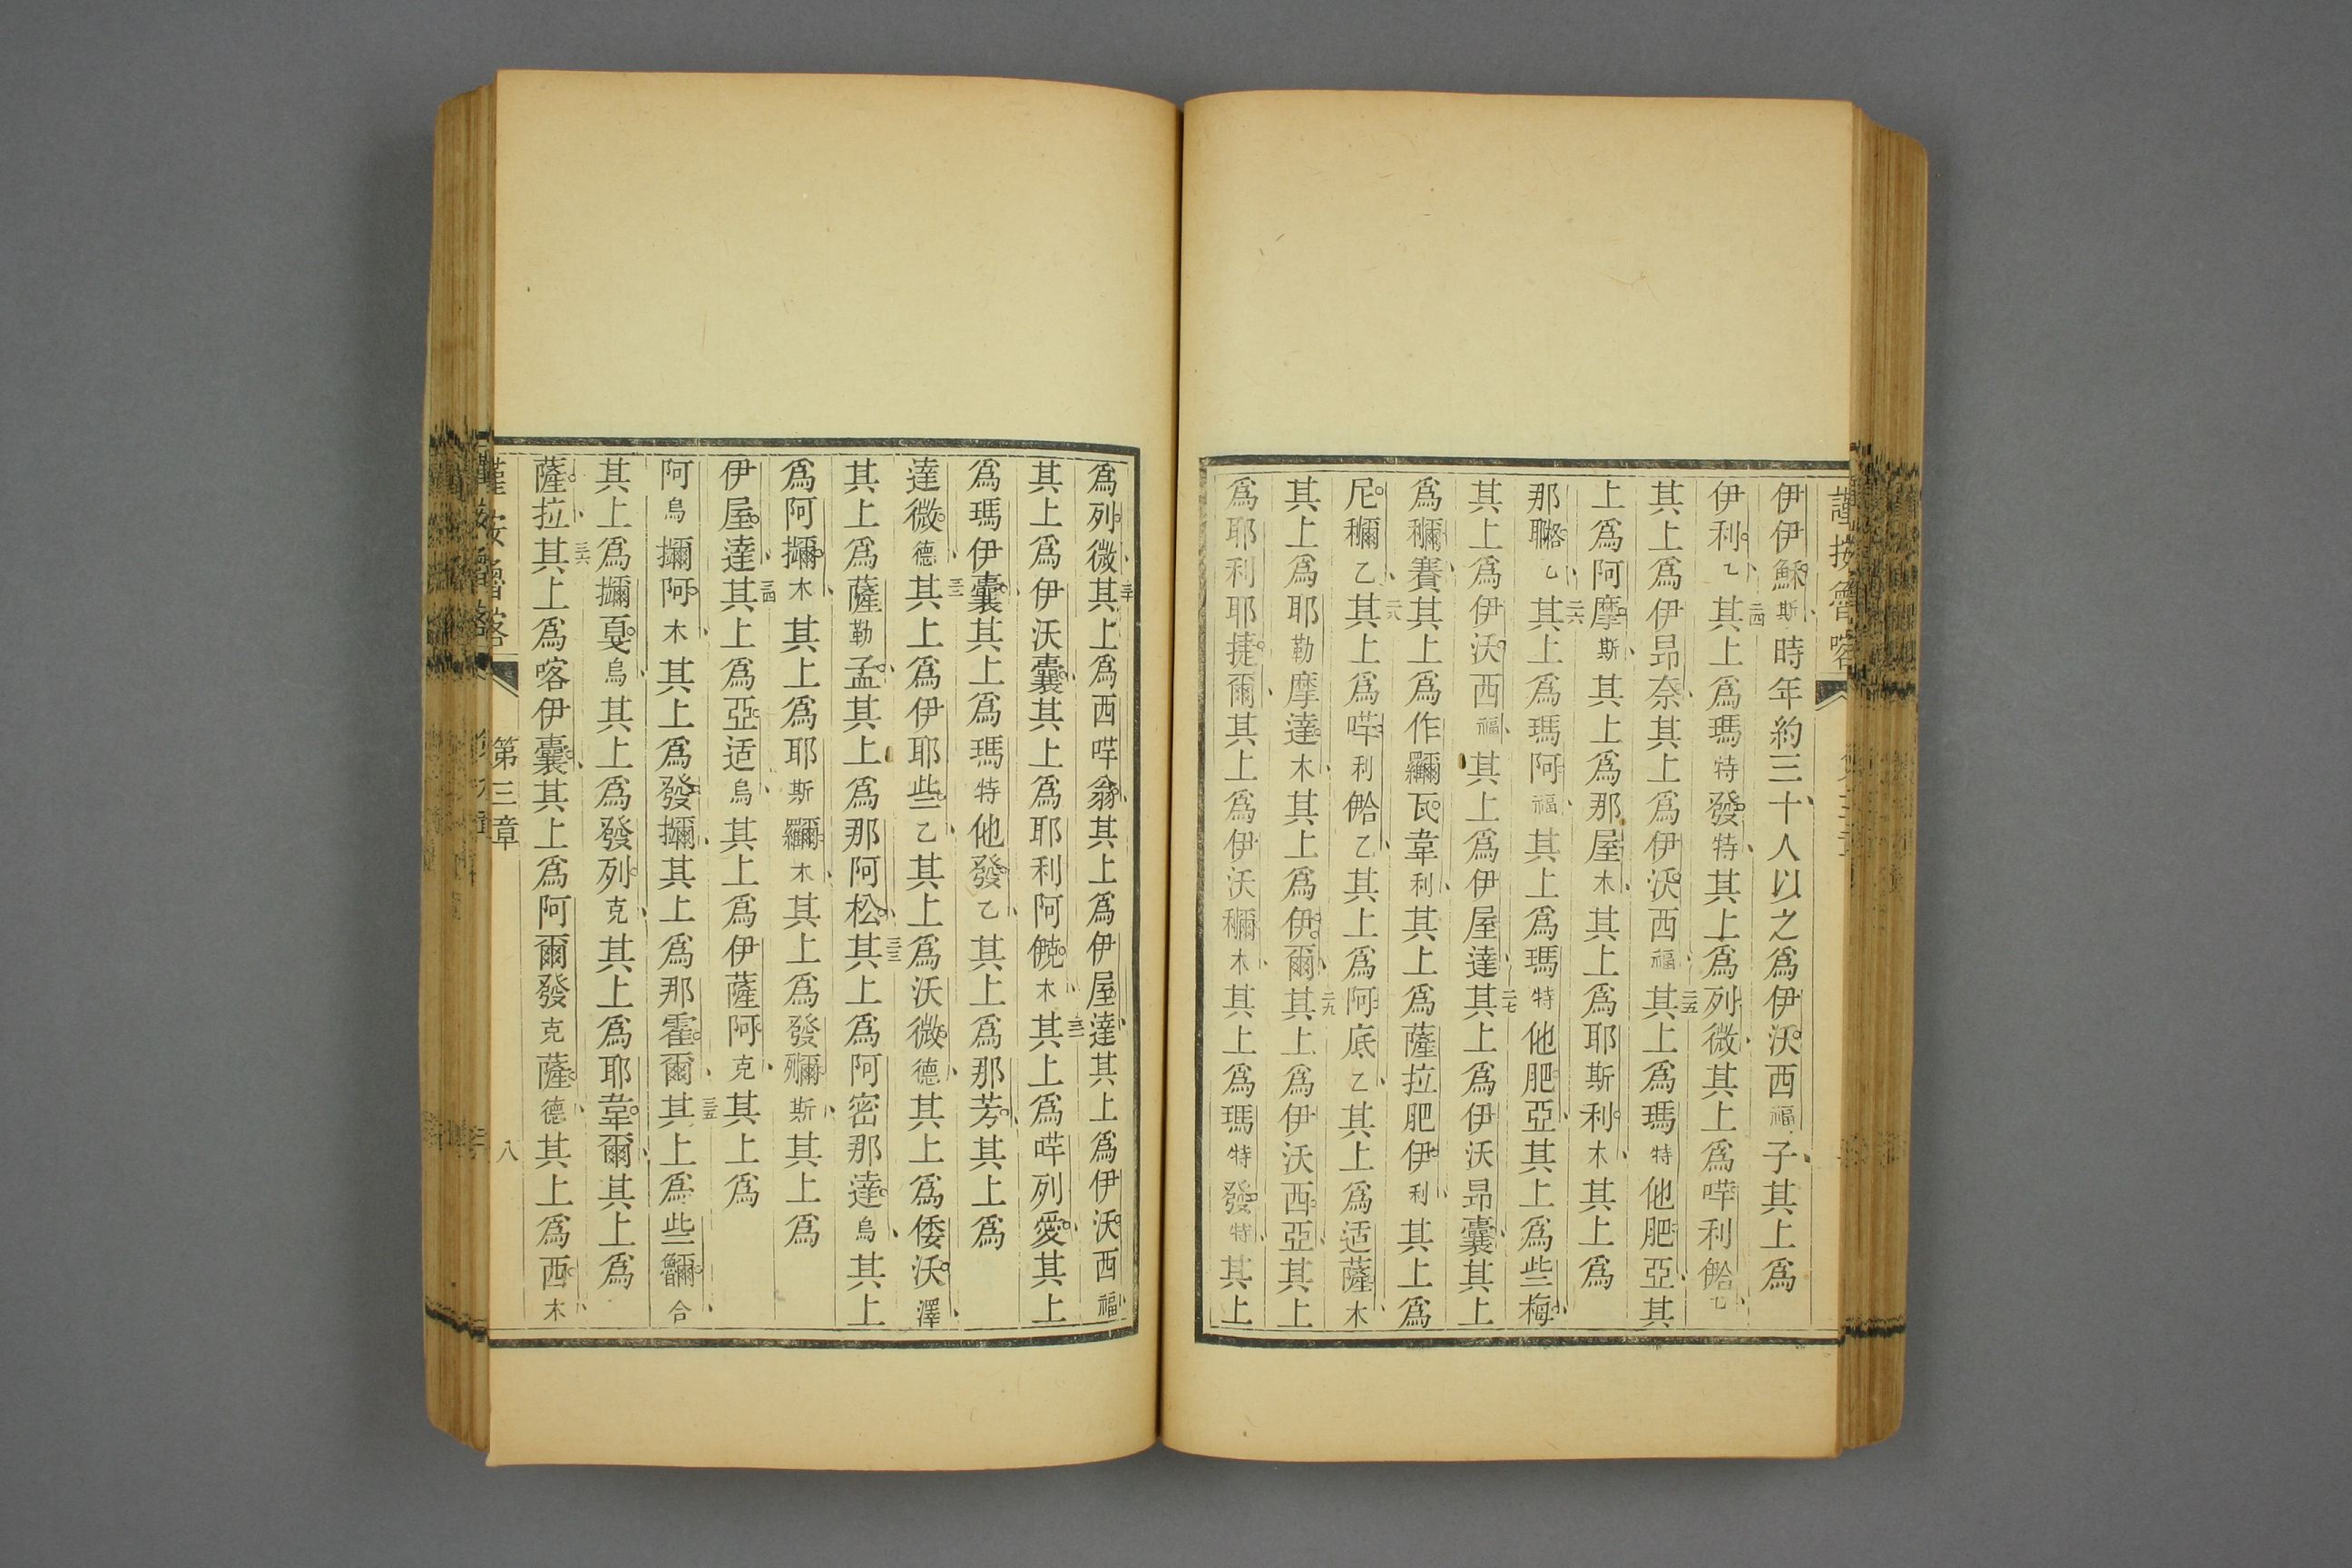 伊伊穌斯時年約三十人以之爲伊沃西福子其上爲
伊利乙其上爲瑪特發特其上爲列微其上爲哶利𠎀乙
其上爲伊昻奈其上爲伊沃西福其上爲瑪特他肥亞其
上爲阿摩斯其上爲那屋木其上爲耶斯利木其上爲
那乙其上爲瑪阿福其上爲瑪特他肥亞其上爲些梅
其上爲伊沃西福其上爲伊屋達其上爲伊沃昻囊其上
爲賽其上爲作瓦韋利其上爲薩拉肥伊利其上爲
尼乙其上爲哶利𠎀乙其上爲阿底乙其上爲适薩木
其上爲耶勒摩達木其上爲伊爾其上爲伊沃西亞其上
爲耶利耶捷爾其上爲伊沃木其上爲瑪特發特其上
爲列微其上爲西哶翁其上爲伊屋達其上爲伊沃西福
其上爲伊沃囊其上爲耶利阿木其上爲哶列愛其上
爲瑪伊囊其上爲瑪特他發乙其上爲那芳其上爲
達微德其上爲伊耶些乙其上爲沃微德其上爲倭沃澤
其上爲薩勒孟其上爲那阿松其上爲阿密那達烏其上
爲阿木其上爲耶斯木其上爲發斯其上爲
伊屋達其上爲亞适烏其上爲伊薩阿克其上爲
阿烏阿木其上爲發其上爲那霍爾其上爲些合
其上爲戛烏其上爲發列克其上爲耶韋爾其上爲
薩拉其上爲喀伊囊其上爲阿爾發克薩德其上爲西木
第三章
八